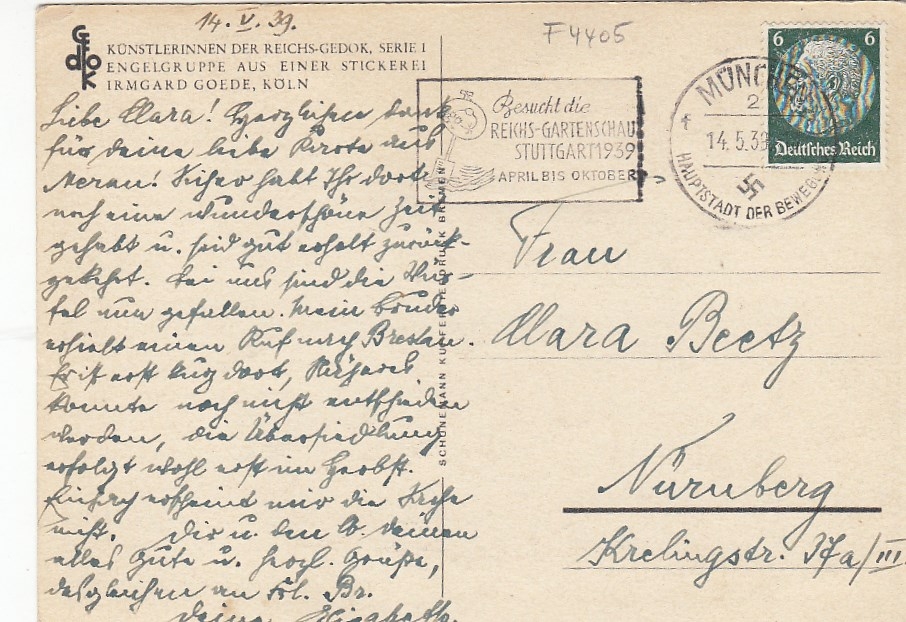 14. V. 39.
F4405
Gedok
KÜNSTLERINNEN DER REICHS-GEDOK, SERIE I
ENGELGRUPPE AUS EINER STICKEREI
IRMGARD GOEDE, KÖLN
Besucht die
REICHS-GARTENSCHAU
STUTTGART 1939
APRIL BIS OKTOBER
MÜNCHEN
2
f
14.5.39
HAUPTSTADT DER BEWEGUNG
6 6
Deutsches Reich
Liebe Clara! Herzlichen Dank
für Deine liebe Karte aus
Meran! Sicher habt Ihr dort
noch eine wunderschöne Zeit
gehabt u. seid gut erholt zurück-
gekehrt. Bei uns sind die Wür-
fel nun gefallen. Mein Bruder
erhielt einen Ruf nach Breslau.
Er ist erst kurz dort, Näheres
konnte noch nicht entschieden
werden, die Übersiedlung
erfolgt wohl erst im Herbst.
Einfach erscheint mir die Sache
nicht. Dir u. den lb. Deinen
alles Gute u. herzl. Grüße,
desgleichen an Frl. Br.
Deine
SCHÜNEMANN KUPFERTIEFDRUCK BREMEN
Frau
Clara Beetz
Nürnberg
Krelingstr. 37a/III